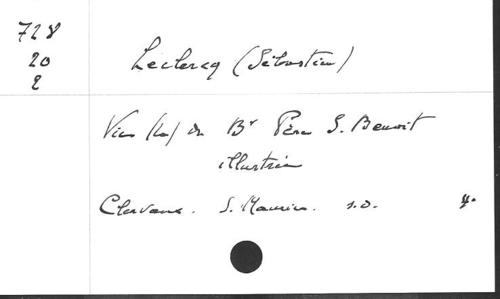 728
20
2
Leclercq (Sébastien)
Vie (La) du Bx Père S. Benoit
illustrée
Clervaux. S. Maurice. s.d. 4°